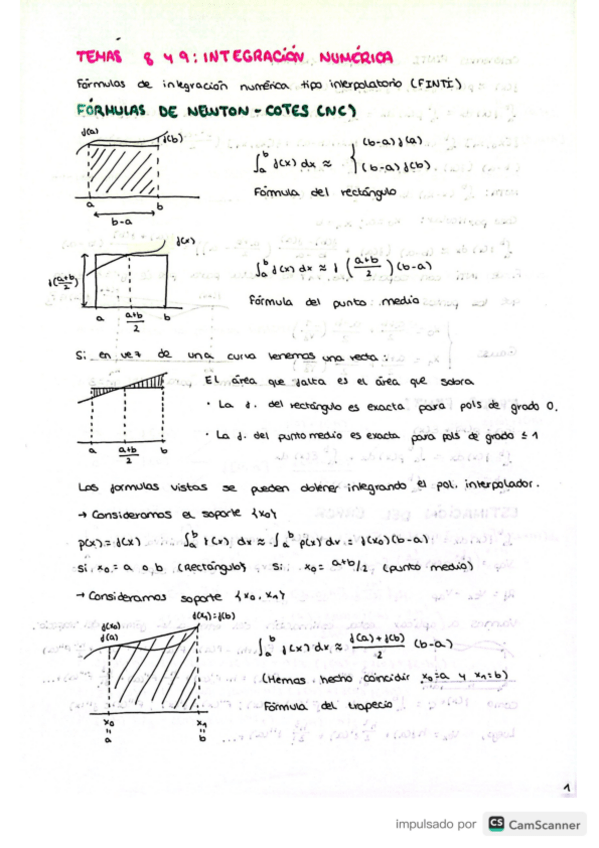 TEMAS 8 Y 9: INTEGRACIÓN NUMÉRICA
Fórmulas de integración numérica tipo interpolatorio (FINTI)
FÓRMULAS DE NEWTON-COTES (NC)
f(a)
f(b)
∫_a^b f(x) dx ≈ { (b-a) f(a)
(b-a) f(b)
Fórmula del rectángulo
a b
b-a
f(x)
f(a+b/2)
∫_a^b f(x) dx ≈ f (a+b/2) (b-a)
Fórmula del punto medio
a a+b/2 b
Si en vez de una curva tenemos una recta:
El área que falta es el área que sobra
· La f. del rectángulo es exacta para pols de grado 0.
· La f. del punto medio es exacta para pols de grado ≤ 1
a a+b/2 b
Las formulas vistas se pueden obtener integrando el pol. interpolador.
→ Consideramos el soporte {x0}
p(x) = f(x) ∫_a^b f(x) dx ≈ ∫_a^b p(x) dx = f(x0)(b-a)
si x0 = a o b (Rectángulo) si x0 = a+b/2 (punto medio)
→ Consideramos soporte {x0, x1}
f(x1)=f(b)
f(x0)
f(a)
∫_a^b f(x) dx ≈ f(a)+f(b)/2 (b-a)
(Hemos hecho coincidir x0=a y x1=b)
Fórmula del trapecio
x0 x1
= =
a b
1
impulsado por CS CamScanner